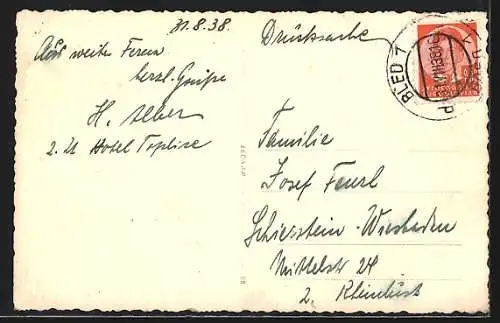 31.8.38.
Drucksache
Aus weiter Ferne
herzl. Grüße
H. Alber
z. Zt Hotel Toplice
BLED 1
Familie
Josef Feurl
Schierstein-Wiesbaden
Mittelstr 24